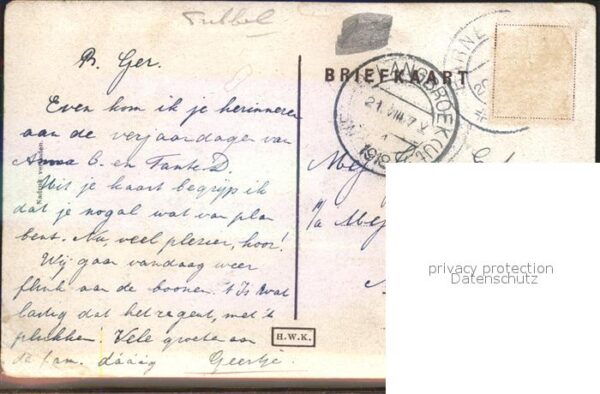 Tubbel
B. Ger.
BRIEFKAART
LANGBROEK (UTR
21.VIII.7 V
1
1918
BARNE
Even kom ik je herinneren
aan de verjaardagen van
Anna G. en Tante D.
Uit je kaart begrijp ik
dat je nogal wat van plan
bent. Nu, veel plezier, hoor!
Wij gaan vandaag weer
flink aan de boonen. 't Is wat
lastig dat het regent, met 't
plukken! Vele groeten aan
de fam. dáááág Geertje
Mej
p/a Mej
H.W.K.
privacy protection
Datenschutz